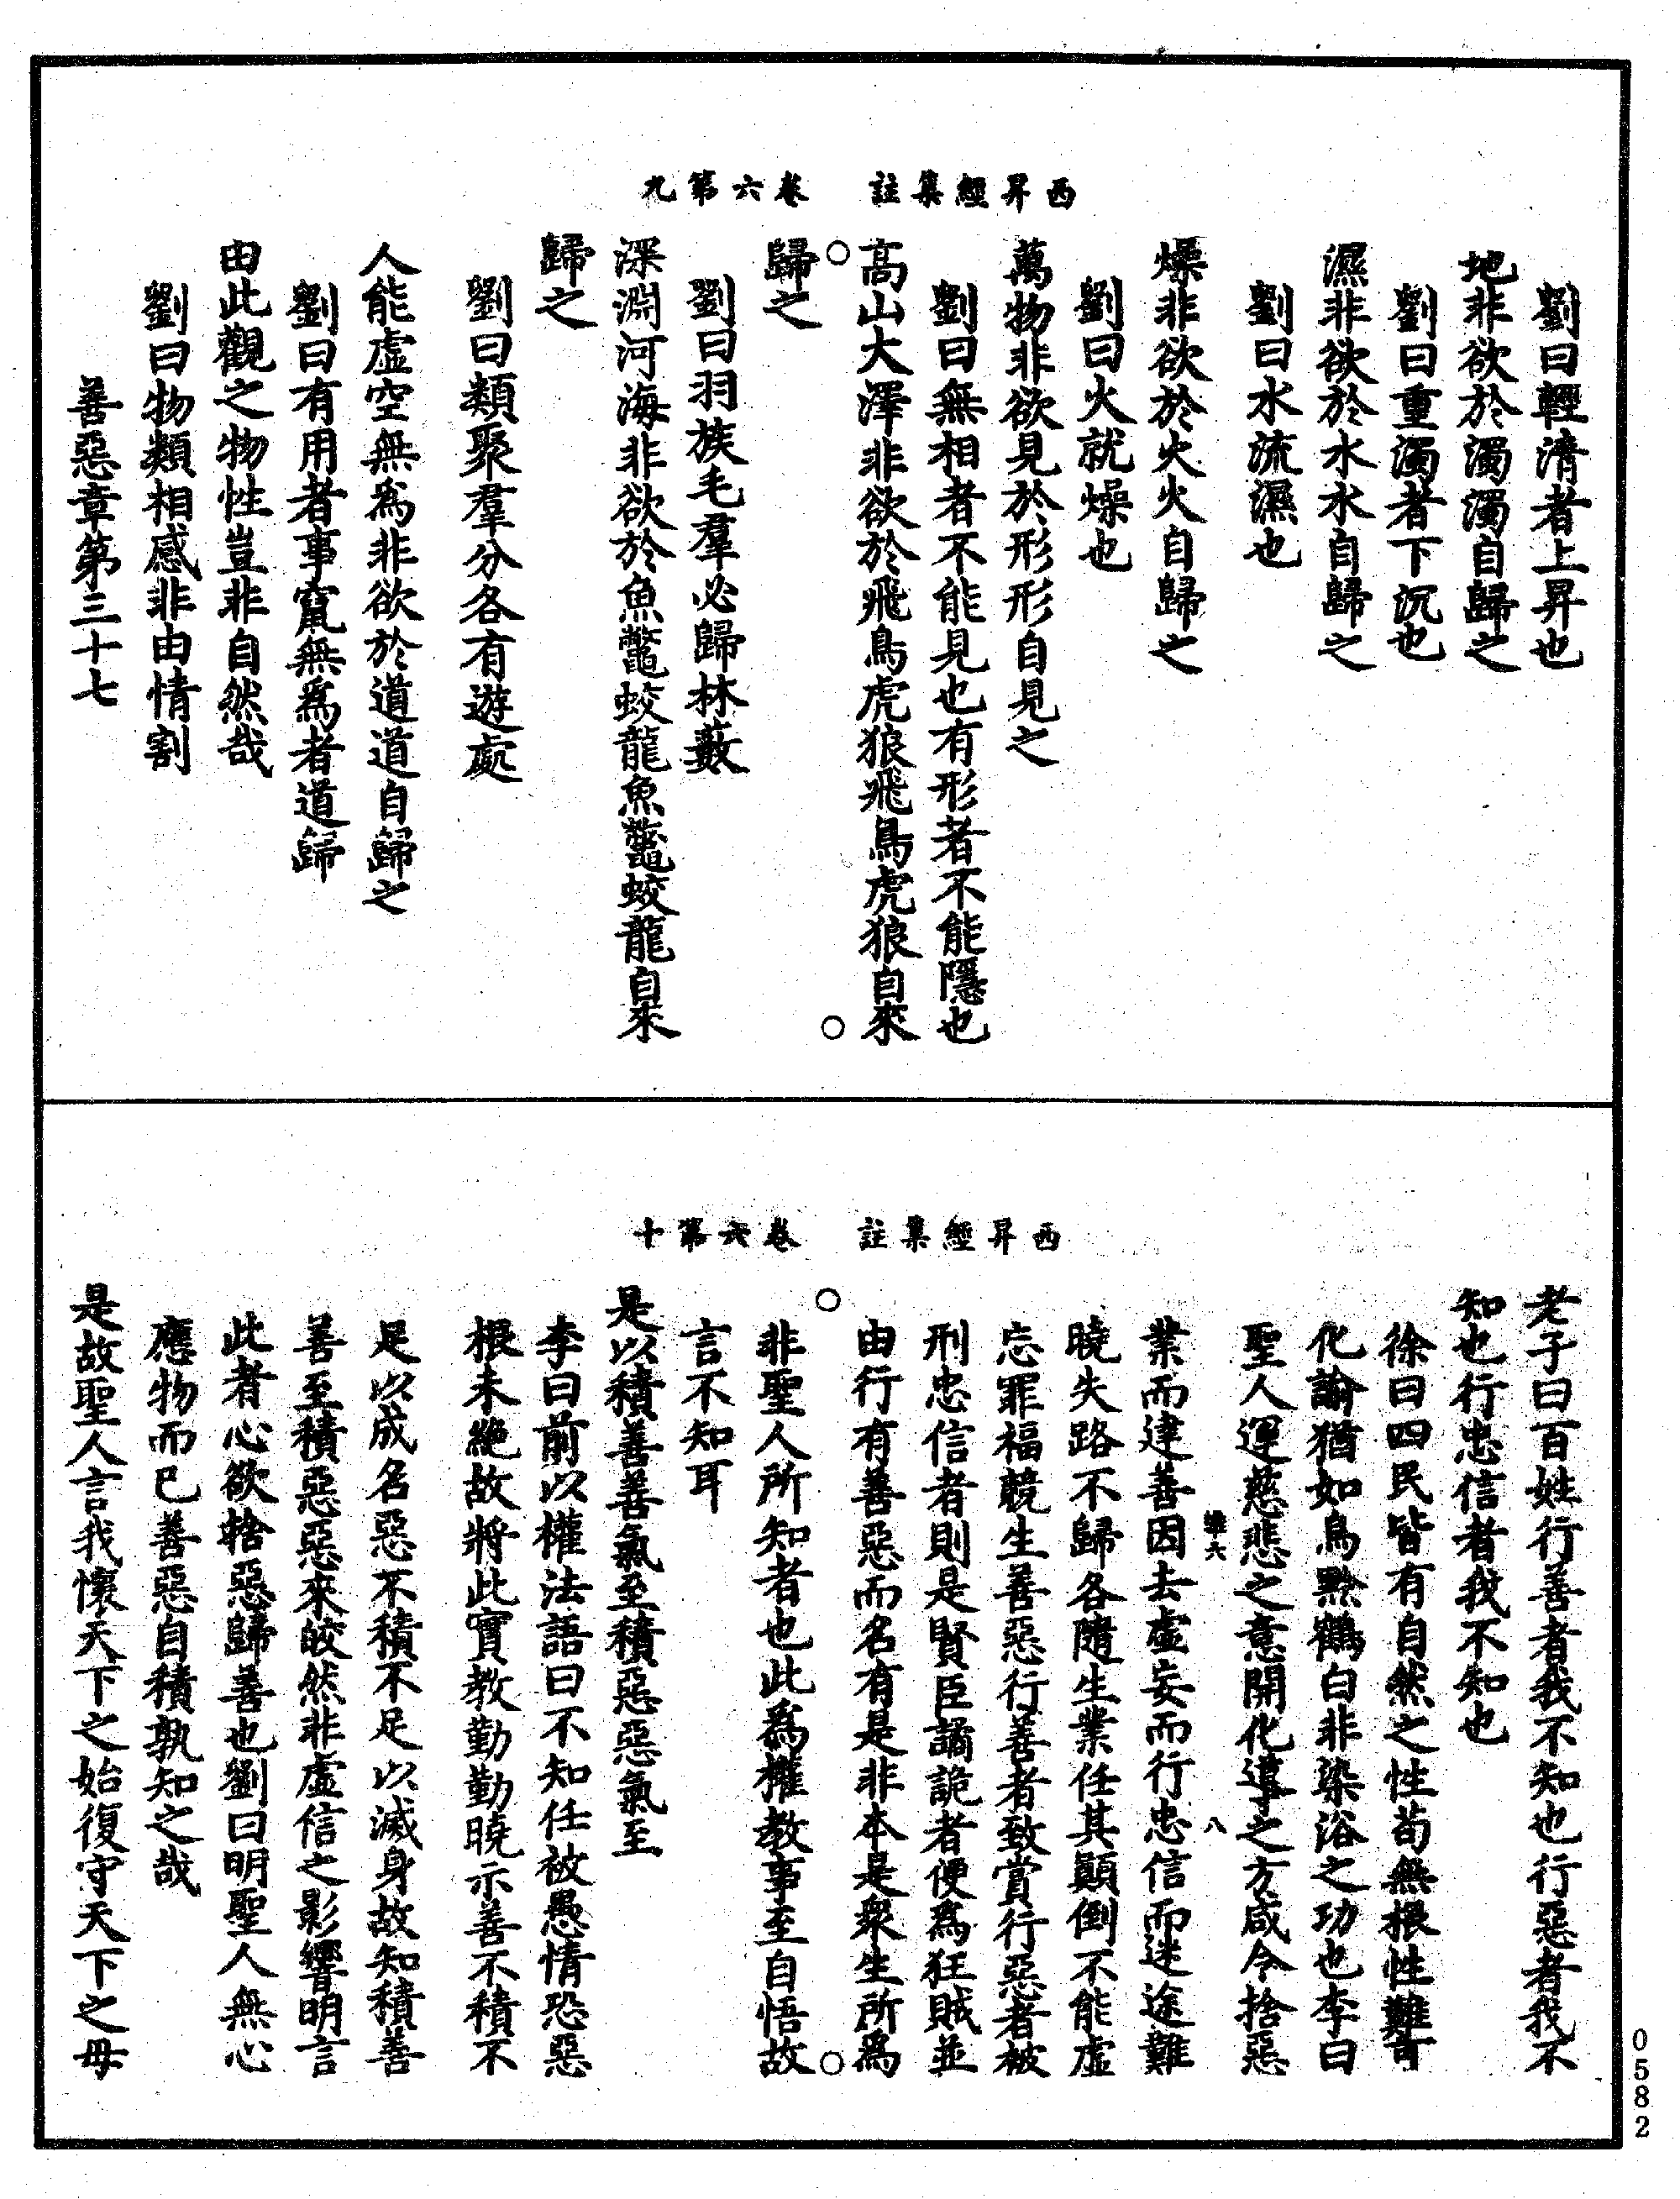 西昇經集註　卷六第九
劉曰輕清者上昇也
地非欲於濁濁自歸之
劉曰重濁者下沉也
濕非欲於水水自歸之
劉曰水流濕也
燥非欲於火火自歸之
劉曰火就燥也
萬物非欲見於形形自見之
劉曰無相者不能見也有形者不能隱也
高山大澤非欲於飛鳥虎狼飛鳥虎狼自來
歸之
劉曰羽族毛羣必歸林藪
深淵河海非欲於魚鼈蛟龍魚鼈蛟龍自來
歸之
劉曰類聚羣分各有遊處
人能虛空無爲非欲於道道自歸之
劉曰有用者事竄無爲者道歸
由此觀之物性豈非自然哉
劉曰物類相感非由情割
善惡章第三十七
西昇經集註　卷六第十
老子曰百姓行善者我不知也行惡者我不
知也行忠信者我不知也
徐曰四民皆有自然之性苟無根性難可
化諭猶如烏黔鶴白非染浴之功也李曰
聖人運慈悲之意開化導之方咸令捨惡
維六　八
業而建善因去虛妄而行忠信而迷途難
曉失路不歸各隨生業任其顛倒不能虛
忘罪福競生善惡行善者致賞行惡者被
刑忠信者則是賢臣譎詭者便爲狂賊並
由行有善惡而名有是非本是衆生所爲
非聖人所知者也此爲權教事至自悟故
言不知耳
是以積善善氣至積惡惡氣至
李曰前以權法語曰不知任被愚情恐惡
根未絶故將此實教勤勤曉示善不積不
足以成名惡不積不足以滅身故知積善
善至積惡惡來皎然非虛信之影響明言
此者心欲捨惡歸善也劉曰明聖人無心
應物而已善惡自積孰知之哉
是故聖人言我懷天下之始復守天下之母
0582